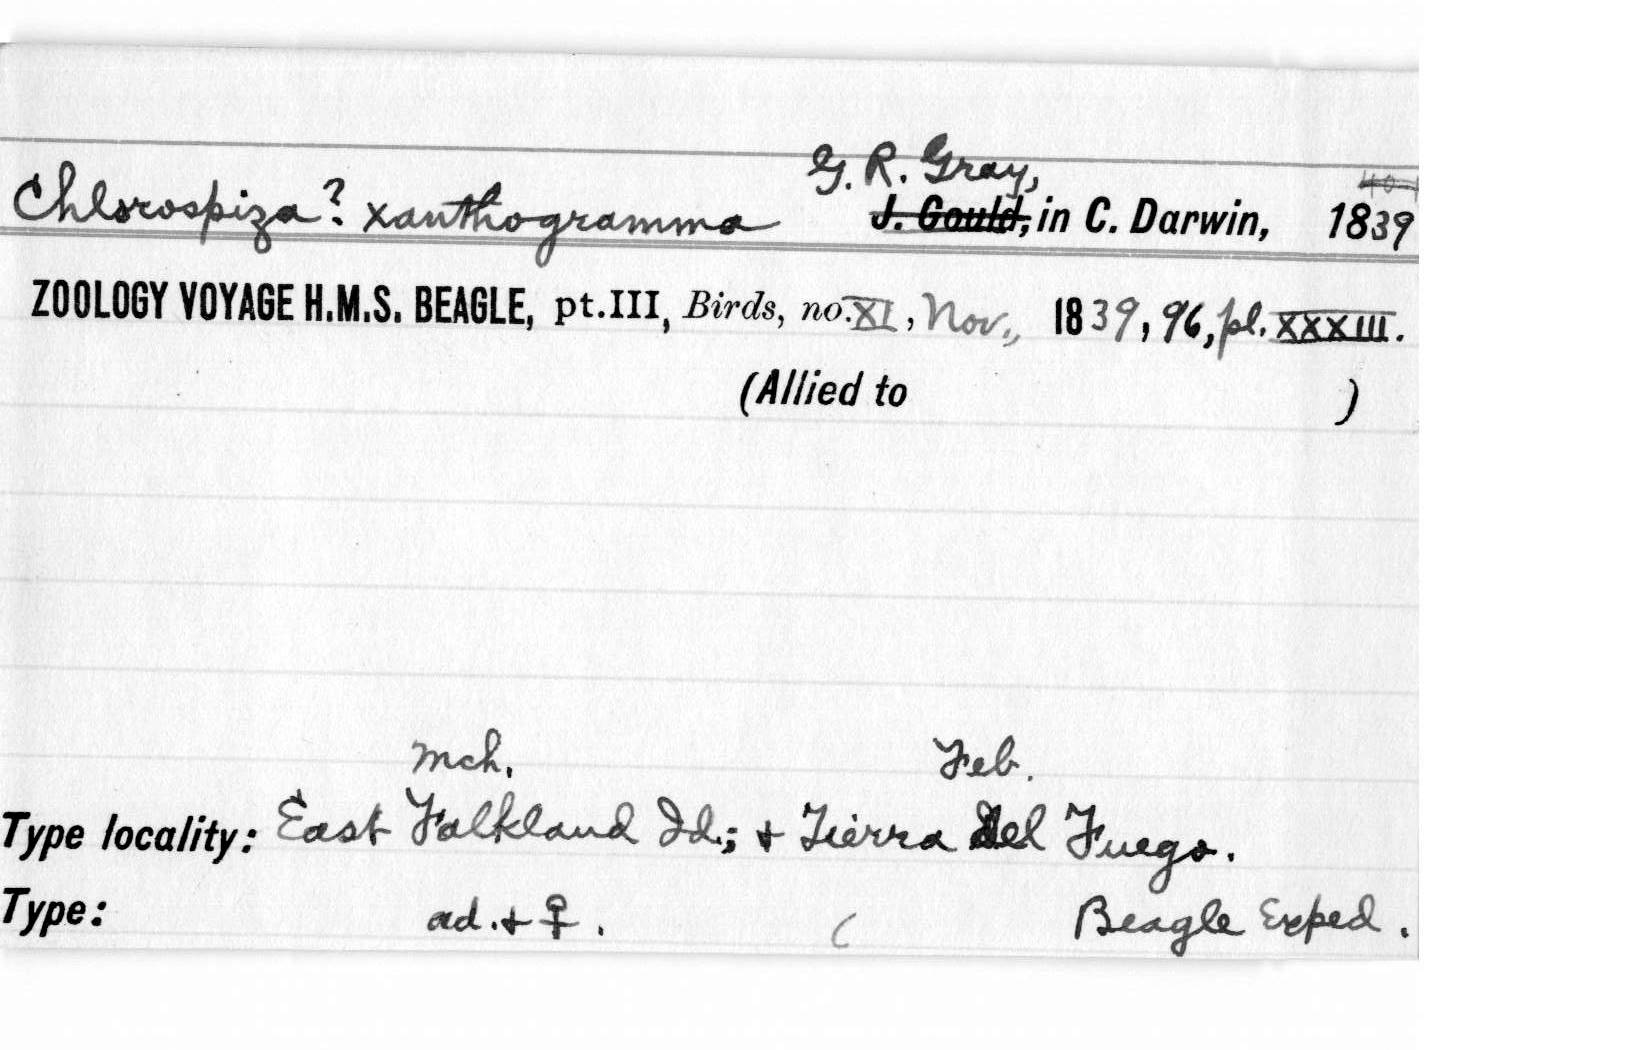 G. R. Gray,
Chlorospiza? xanthogramma J. Gould, in C. Darwin, 1839
ZOOLOGY VOYAGE H.M.S. BEAGLE, pt.III, Birds, no.XI, Nov., 1839, 96, pl. XXXIII.
(Allied to )
Mch. Feb.
Type locality: East Falkland Id.; + Tierra del Fuego.
Type: ad. + ♀. ( Beagle Exped.